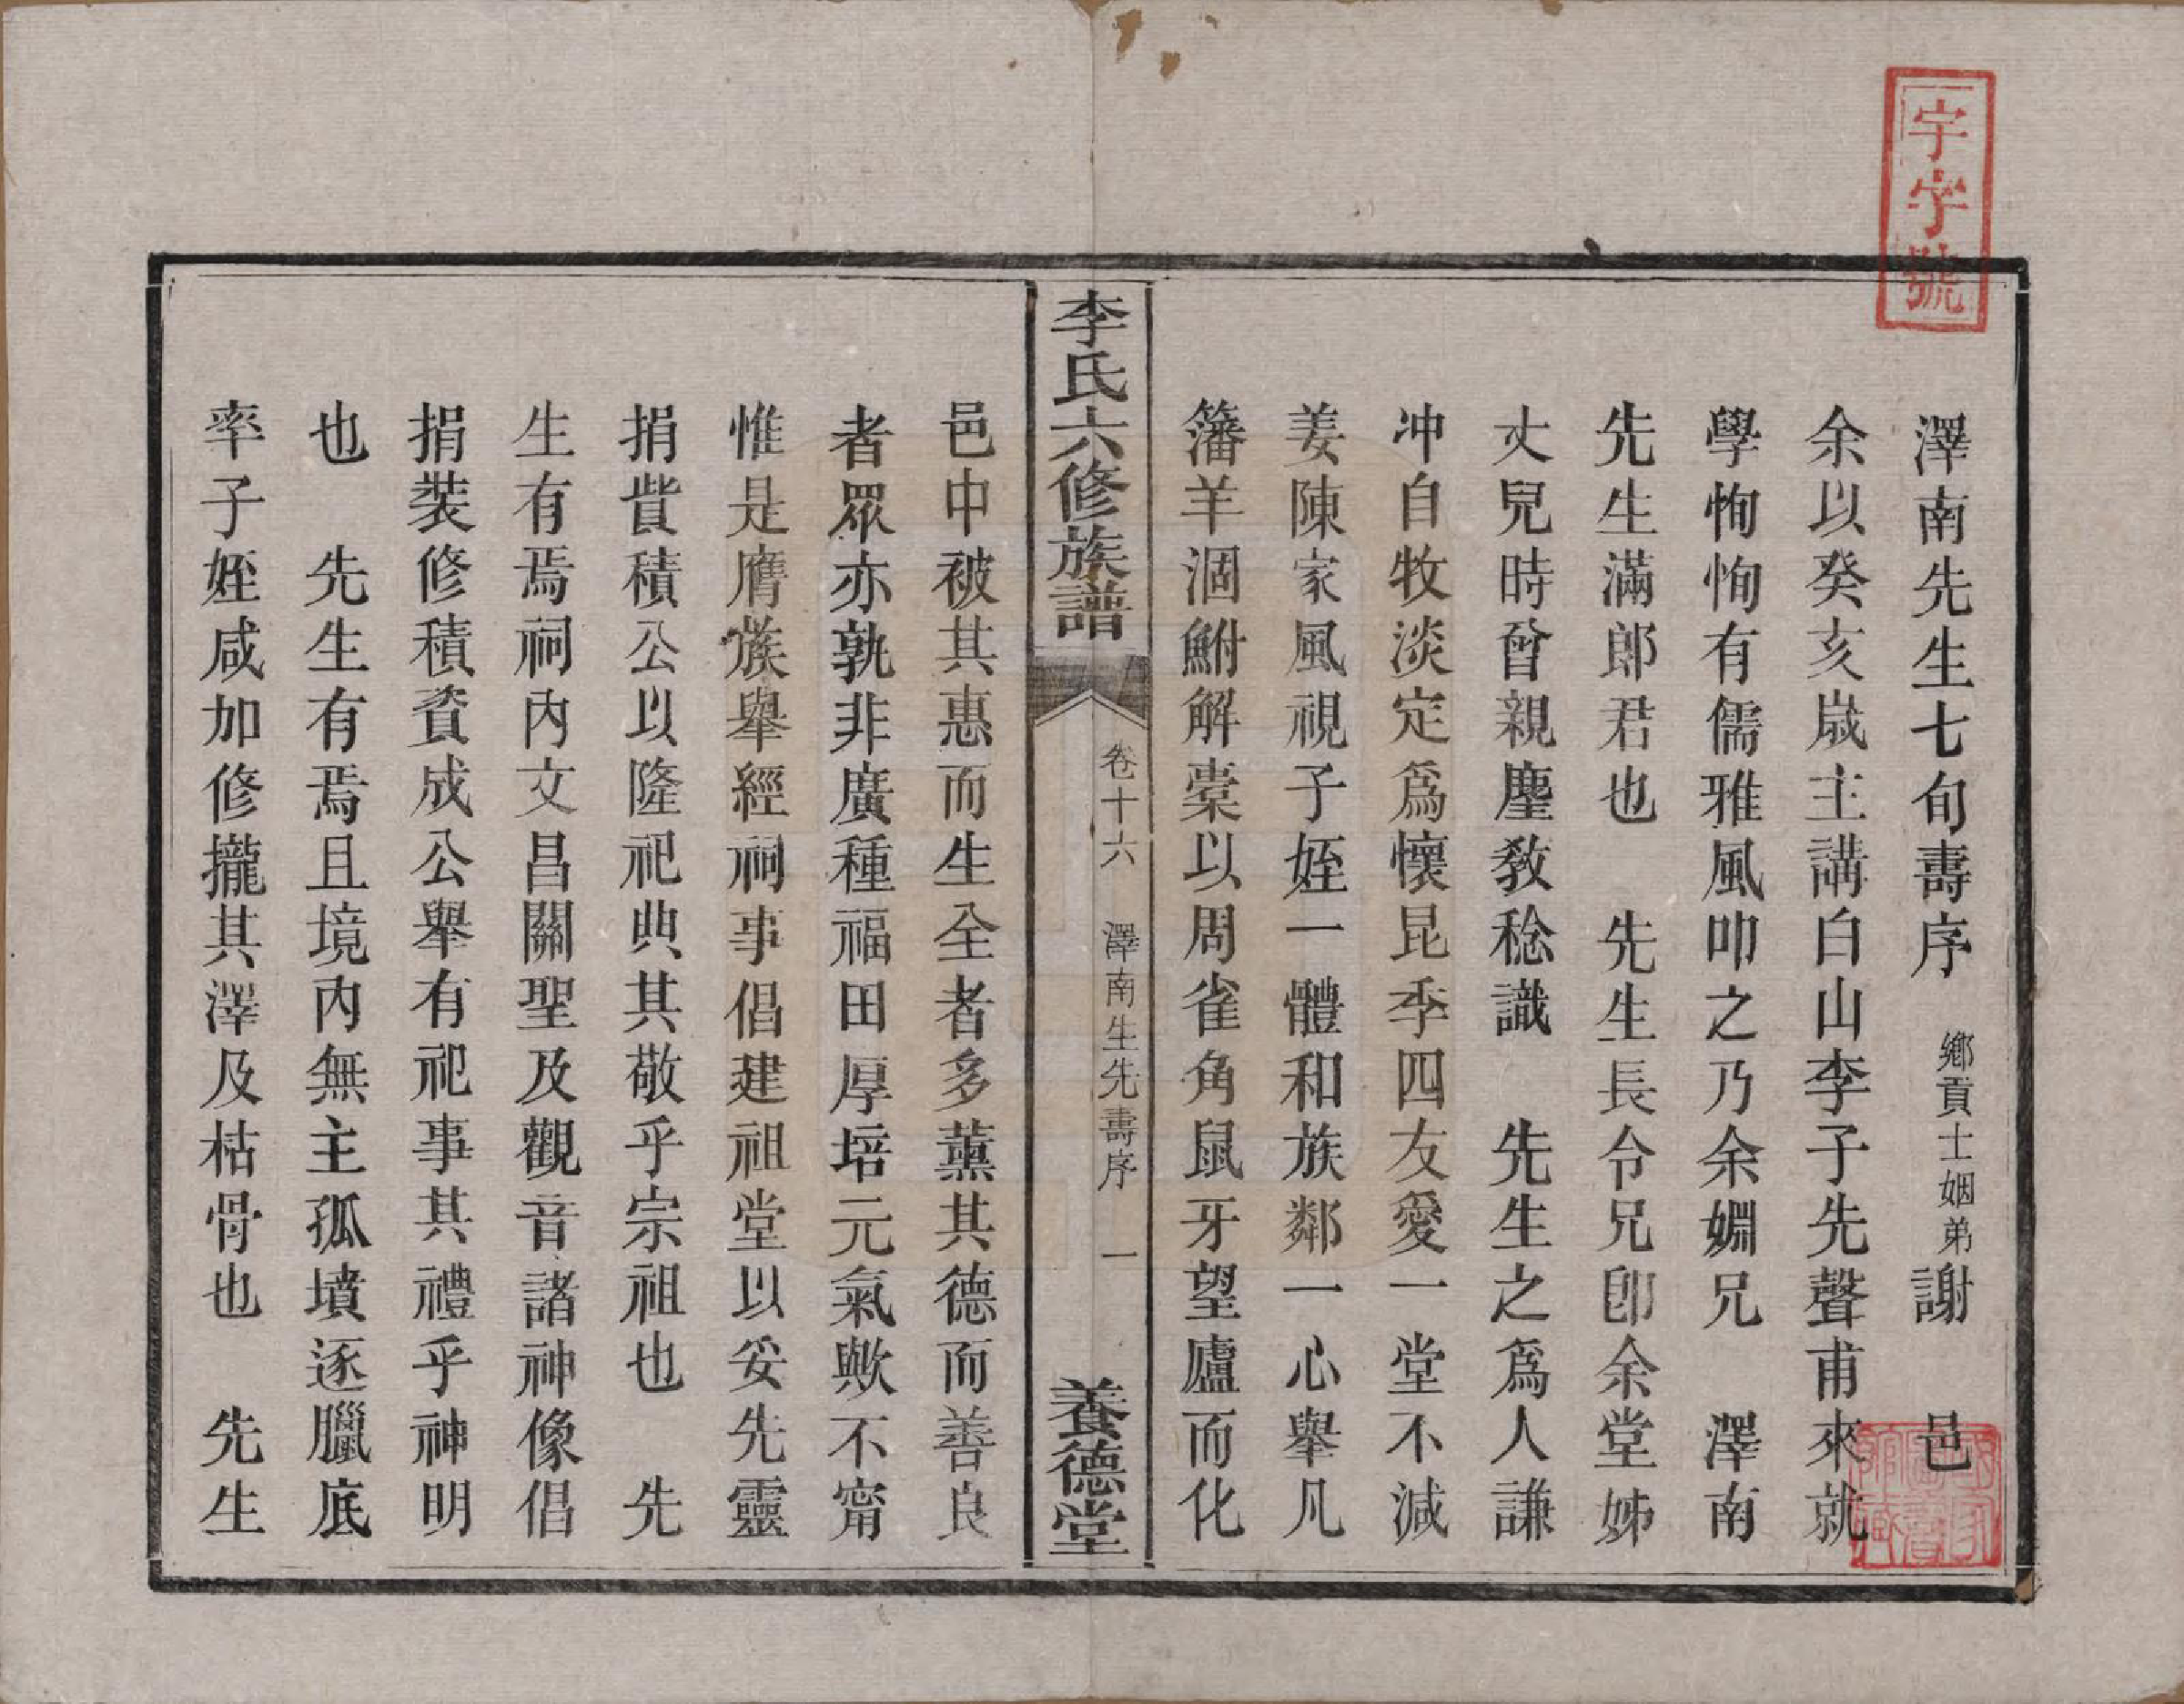 宇字號
澤南先生七旬壽序 鄉貢士姻弟謝 邑
余以癸亥歲主講白山李子先聲甫來就
學恂恂有儒雅風叩之乃余婣兄 澤南
先生滿郎君也 先生長令兄卽余堂姊
丈兒時曾親塵教稔識 先生之爲人謙
冲自牧淡定爲懷昆季四友愛一堂不減
姜陳家風視子姪一體和族鄰一心舉凡
籓羊涸鮒解槖以周雀角鼠牙望廬而化
李氏六修族譜 卷十六 澤南生先壽序 一 養德堂
邑中被其惠而生全者多薰其德而善良
者眾亦孰非廣種福田厚培元氣歟不甯
惟是膺蔟舉經祠事倡建祖堂以妥先靈
捐貲積公以隆祀典其敬乎宗祖也 先
生有焉祠內文昌關聖及觀音諸神像倡
捐裝修積資成公舉有祀事其禮乎神明
也 先生有焉且境內無主孤墳逐臘底
率子姪咸加修攏其澤及枯骨也 先生